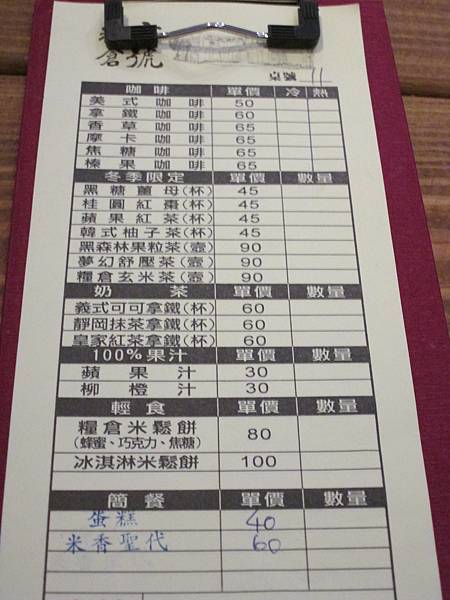 倉號
桌號 11
咖啡 單價 冷 熱
美式咖啡 50
拿鐵咖啡 60
香草咖啡 65
摩卡咖啡 65
焦糖咖啡 65
榛果咖啡 65
冬季限定 單價 數量
黑糖薑母(杯) 45
桂圓紅棗(杯) 45
蘋果紅茶(杯) 45
韓式柚子茶(杯) 45
黑森林果粒茶(壺) 90
夢幻舒壓茶(壺) 90
糧倉玄米茶(壺) 90
奶茶 單價 數量
義式可可拿鐵(杯) 60
靜岡抹茶拿鐵(杯) 60
皇家紅茶拿鐵(杯) 60
100%果汁 單價 數量
蘋果汁 30
柳橙汁 30
輕食 單價 數量
糧倉米鬆餅 80
(蜂蜜、巧克力、焦糖)
冰淇淋米鬆餅 100
簡餐 單價 數量
蛋糕 40
米香聖代 60